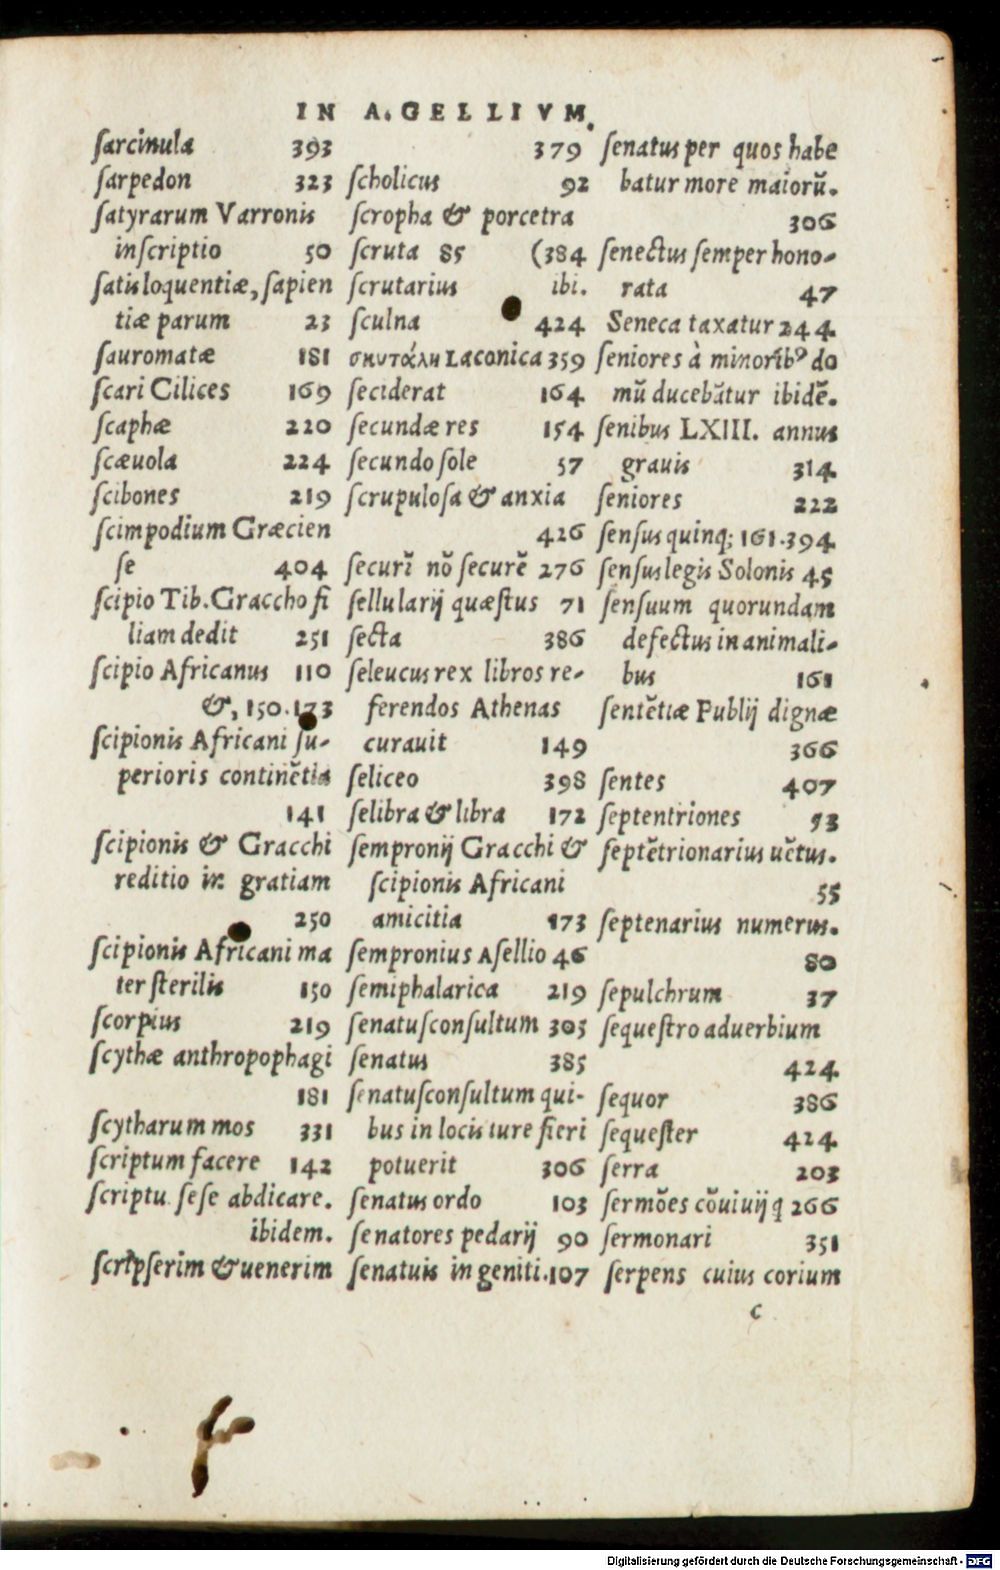 IN A. GELLIVM.
ſarcinula 393
ſarpedon 323
ſatyrarum Varronis
inſcriptio 50
ſatis loquentiæ, ſapien
tiæ parum 23
ſauromatæ 181
ſcari Cilices 169
ſcaphæ 220
ſcæuola 224
ſcibones 219
ſcimpodium Græcien
ſe 404
ſcipio Tib. Graccho fi
liam dedit 251
ſcipio Africanus 110
&, 150. 173
ſcipionis Africani ſu-
perioris continẽtia
141
ſcipionis & Gracchi
reditio in gratiam
250
ſcipionis Africani ma
ter ſterilis 150
ſcorpius 219
ſcythæ anthropophagi
181
ſcytharum mos 331
ſcriptum facere 142
ſcriptu ſeſe abdicare.
ibidem.
ſcripſerim & uenerim
379
ſcholicus 92
ſcropha & porcetra
ſcruta 85 (384
ſcrutarius ibi.
ſculna 424
σκυτάλη Laconica 359
ſeciderat 164
ſecundæ res 154
ſecundo ſole 57
ſcrupuloſa & anxia
426
ſecurĩ nõ ſecurẽ 276
ſellularij quæſtus 71
ſecta 386
ſeleucus rex libros re-
ferendos Athenas
curauit 149
ſeliceo 398
ſelibra & libra 172
ſempronij Gracchi &
ſcipionis Africani
amicitia 173
ſempronius Aſellio 46
ſemiphalarica 219
ſenatuſconſultum 305
ſenatus 385
ſenatuſconſultum qui-
bus in locis iure fieri
potuerit 306
ſenatus ordo 103
ſenatores pedarij 90
ſenatuis in geniti. 107
ſenatus per quos habe
batur more maiorũ.
306
ſenectus ſemper hono-
rata 47
Seneca taxatur 244
ſeniores à minorib⁹ do
mũ ducebãtur ibidẽ.
ſenibus LXIII. annus
grauis 314
ſeniores 222
ſenſus quinq; 161. 394
ſenſus legis Solonis 45
ſenſuum quorundam
defectus in animali-
bus 161
ſentẽtiæ Publij dignæ
366
ſentes 407
ſeptentriones 53
ſeptẽtrionarius uẽtus.
55
ſeptenarius numerus.
80
ſepulchrum 37
ſequeſtro aduerbium
424
ſequor 386
ſequeſter 424
ſerra 203
ſermões cõuiuij q 266
ſermonari 351
ſerpens cuius corium
c
Digitalisierung gefördert durch die Deutsche Forschungsgemeinschaft - DFG